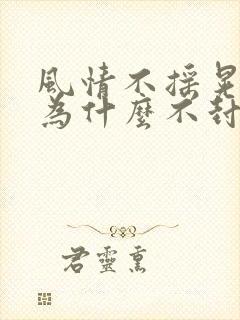 風情不搖晃
為什麼不封
君靈熏